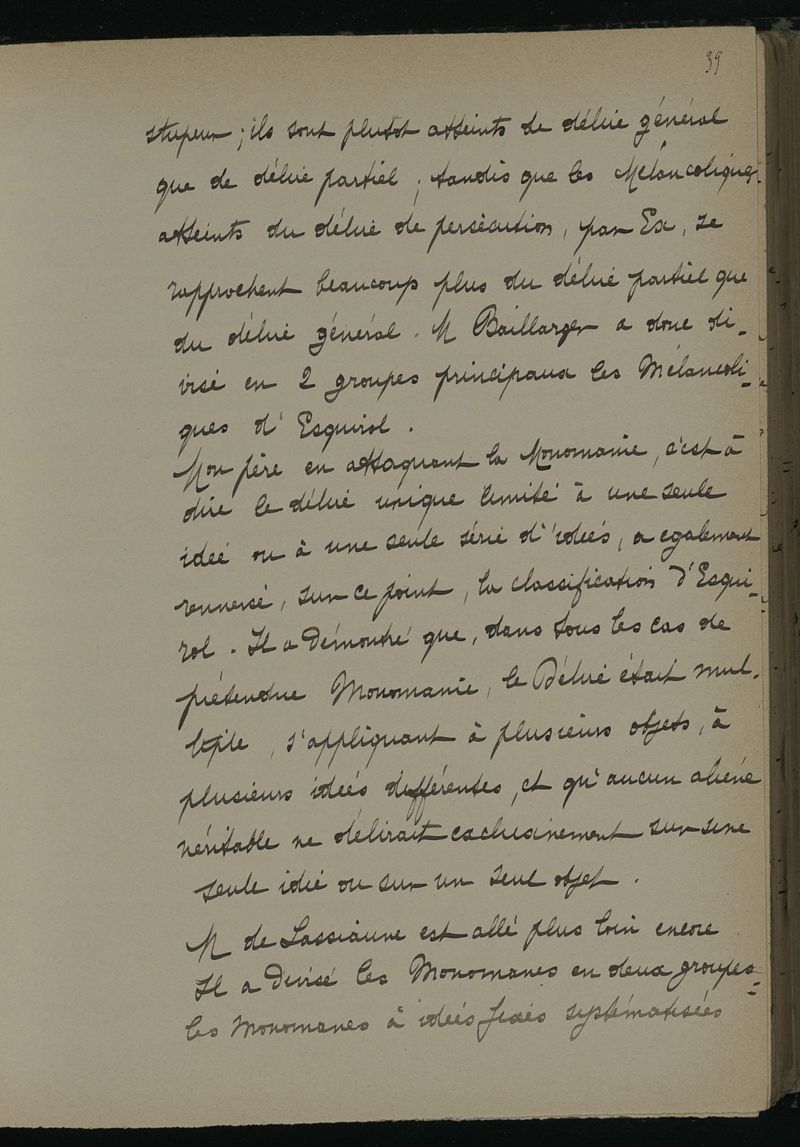 39
stupeur ; ils sont plutot atteints de délire général
que de délire partiel ; tandis que les Mélancoliques
atteints du délire de persécution, par Ex, se
rapprochent beaucoup plus du délire partiel que
du délire général. M Baillarger a donc di-
visé en 2 groupes principaux les Mélancoli-
ques d'Esquirol.
Mon père en attaquant la Monomanie, c'est à
dire le délire unique limité à une seule
idée ou à une seule série d'idées, a egalement
renversé, sur ce point, la classification d'Esqui-
rol. Il a Démontré que, dans tous les cas de
prétendue Monomanie, le Délire était mul-
tiple, s'appliquant à plusieurs objets, à
plusieurs idées différentes, et qu'aucun aliéné
véritable ne délirait exclusivement sur une
seule idée ou sur un seul objet.
M de Lassiauve est allé plus loin encore
Il a Divisé les Monomanes en deux groupes=
les Monomanes à idées fixes systématisées